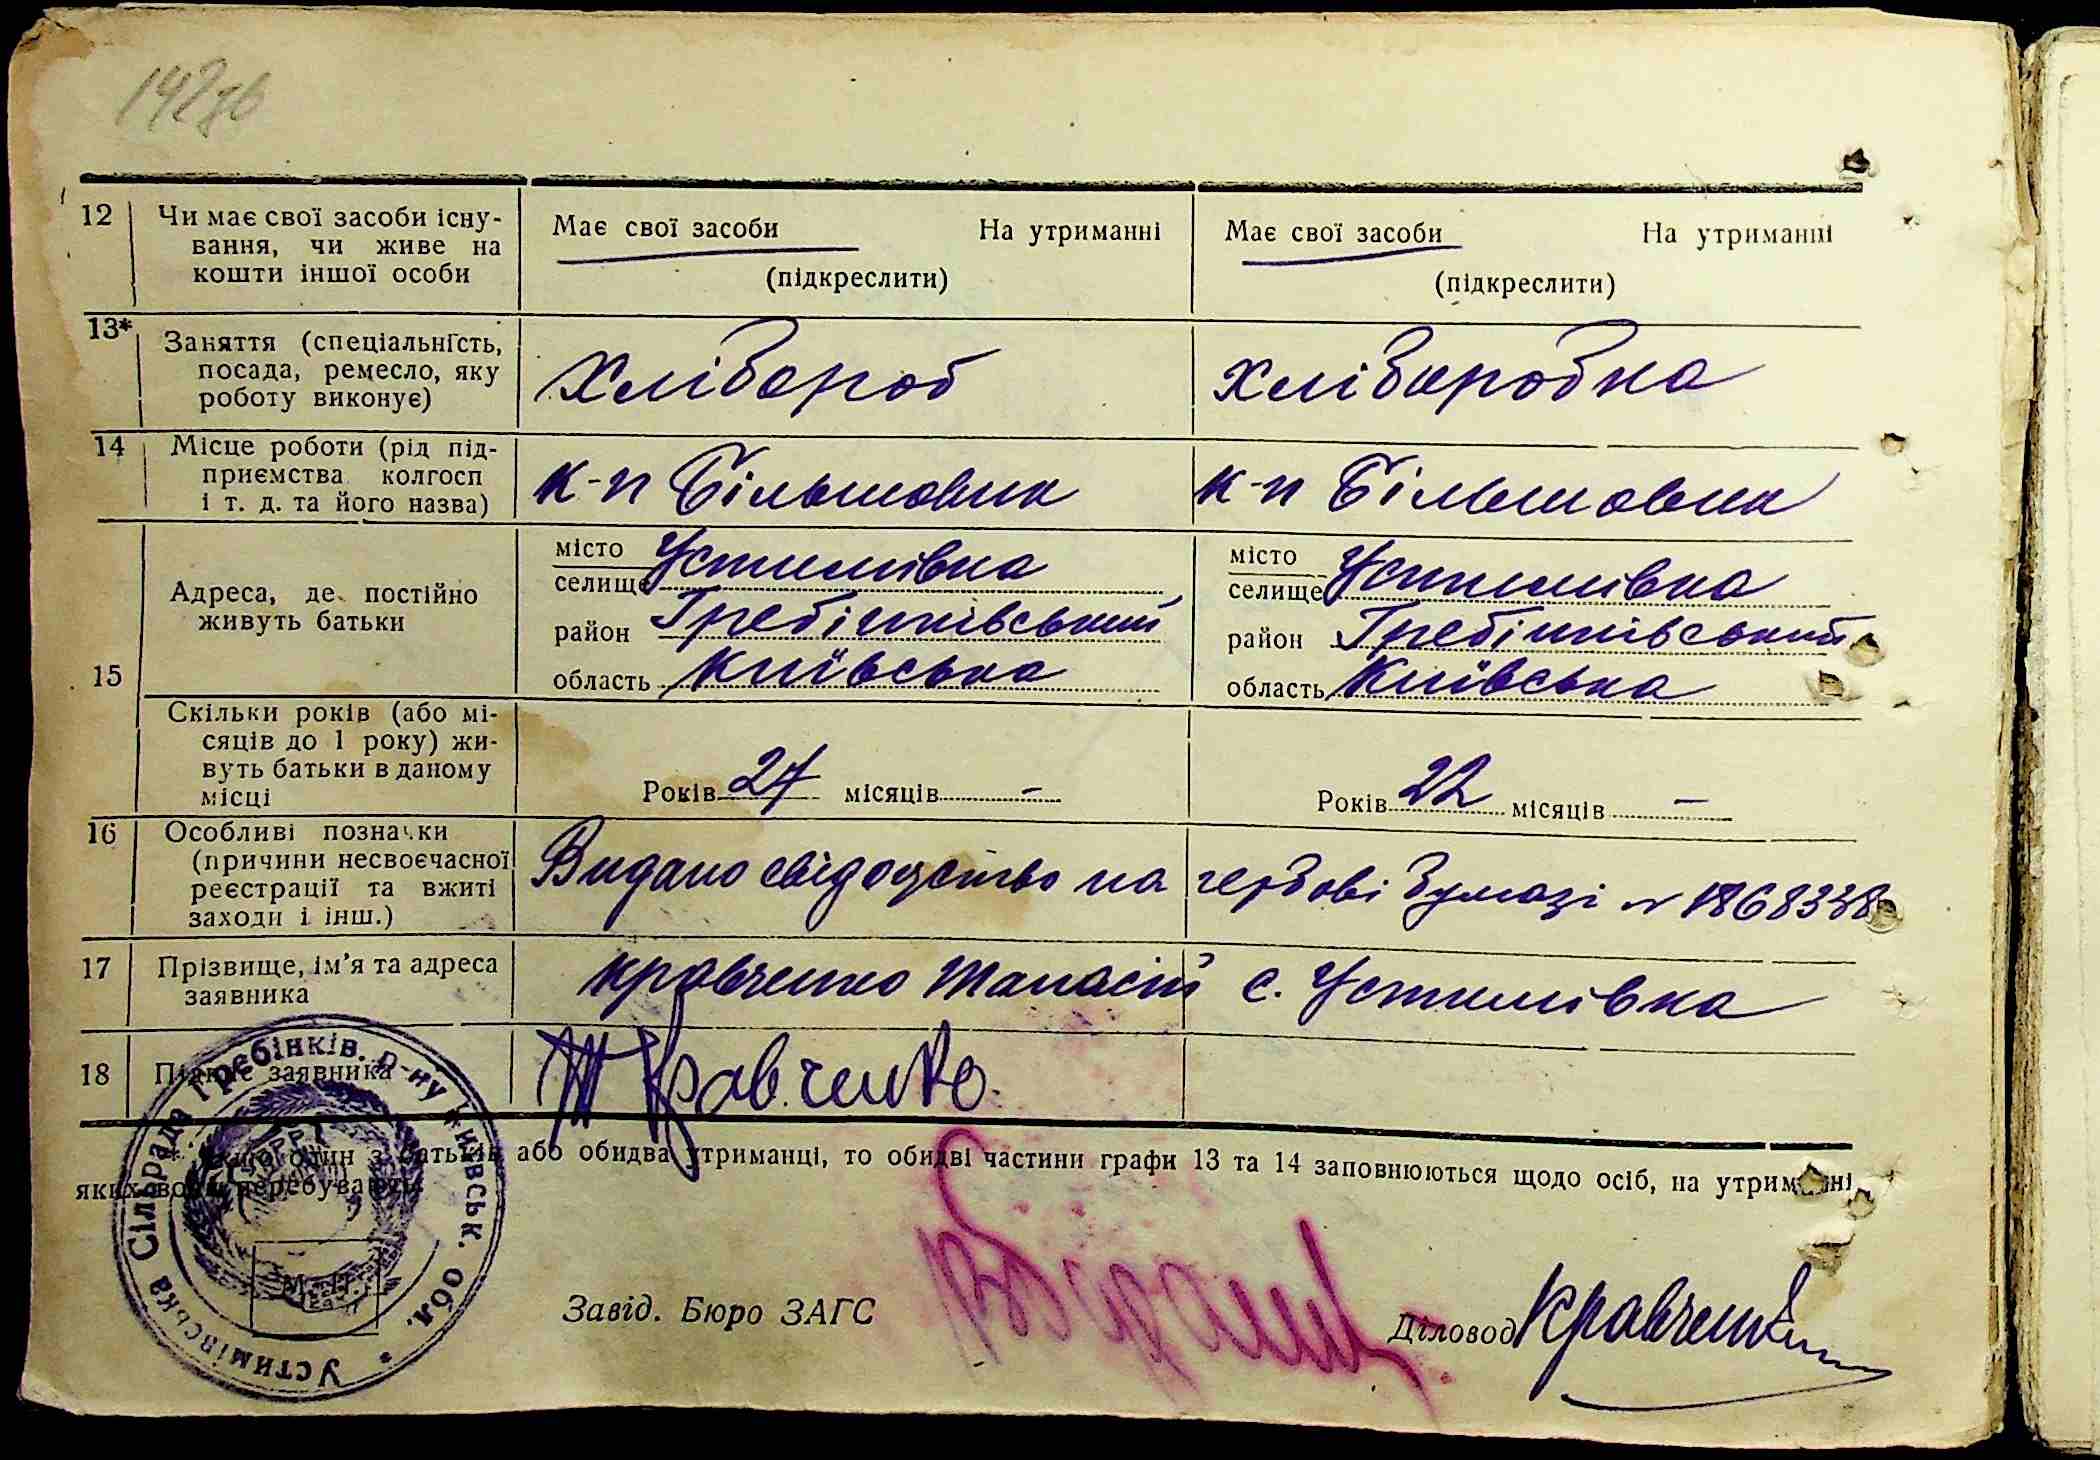 142зв
12 Чи має свої засоби існу-
вання, чи живе на
кошти іншої особи
Має свої засоби На утриманні
(підкреслити)
Має свої засоби На утриманні
(підкреслити)
13* Заняття (спеціальність,
посада, ремесло, яку
роботу виконує)
Хлібороб
Хліборобка
14 Місце роботи (рід під-
приємства колгосп
і т. д. та його назва)
к-п Більшовик
к-п Більшовик
15
Адреса, де постійно
живуть батьки
місто
селище Устимівка
район Гребінківський
область Київська
місто
селище Устимівка
район Гребінківський
область Київська
Скільки років (або мі-
сяців до 1 року) жи-
вуть батьки в даному
місці
Років 27 місяців –
Років 22 місяців –
16 Особливі позначки
(причини несвоєчасної
реєстрації та вжиті
заходи і інш.)
Видано свідоцтво на гербові бумазі № 1868338
17 Прізвище, ім'я та адреса
заявника
Кравченко Танасій с. Устимівка
18 Підпис заявника
Т Кравченко.
* Якщо один з батьків або обидва утриманці, то обидві частини графи 13 та 14 заповнюються щодо осіб, на утриманні
яких вони перебувають.
Устимівська Сільрада Гребінків. р-ну Київськ. обл. *
УРСР
М. П.
Завід. Бюро ЗАГС
Діловод Кравченко